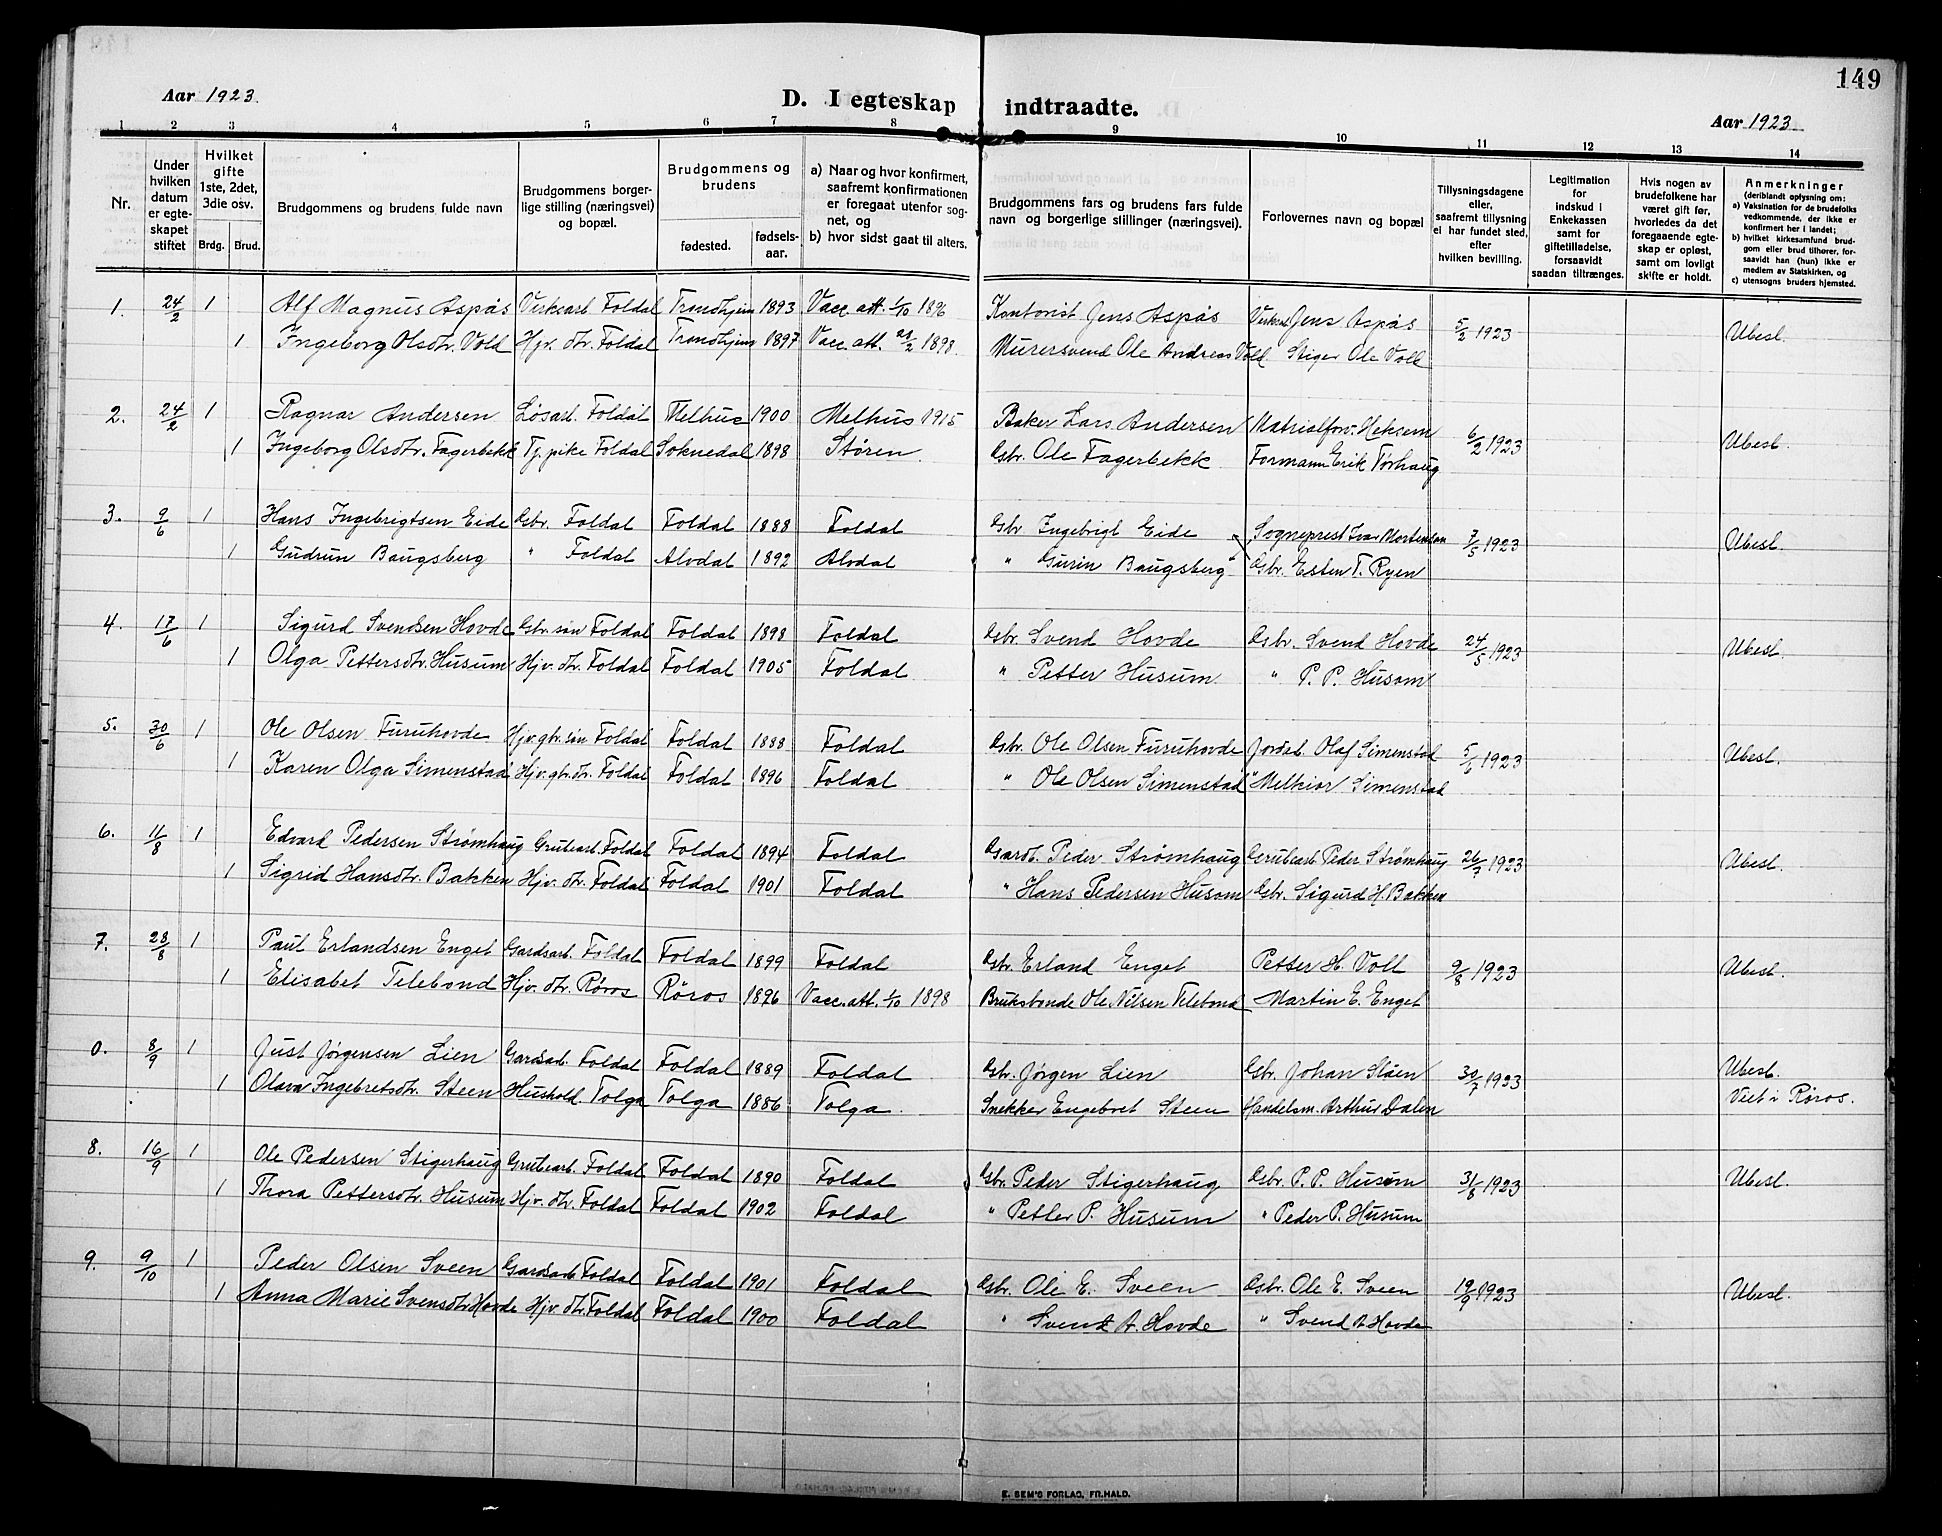 149
Aar 1923.
D. I egteskap indtraadte.
Aar 1923
1 2 3 4 5 6 7 8 9 10 11 12 13 14
Nr.
Under hvilken datum er egteskapet stiftet
Hvilket gifte 1ste, 2det, 3die osv.
Brdg. Brud.
Brudgommens og brudens fulde navn
Brudgommens borgerlige stilling (næringsvei) og bopæl.
Brudgommens og brudens
fødested. fødselsaar.
a) Naar og hvor konfirmert, saafremt konfirmationen er foregaat utenfor sognet, og
b) hvor sidst gaat til alters.
Brudgommens fars og brudens fars fulde navn og borgerlige stillinger (næringsvei).
Forlovernes navn og bopæl
Tillysningsdagene eller, saafremt tillysning ei har fundet sted, efter hvilken bevilling.
Legitimation for indskud i Enkekassen samt for giftetilladelse, forsaavidt saadan tiltrænges.
Hvis nogen av brudefolkene har været gift før, hvorledes da det foregaaende egteskap er opløst, samt om lovligt skifte er holdt.
Anmerkninger (deriblandt oplysning om: a) Vaksination for de brudefolks vedkommende, der ikke er konfirmert her i landet; b) hvilket kirkesamfund brudgom eller brud tilhører, forsaavidt han (hun) ikke er medlem av Statskirken, og c) utensogns bruders hjemsted.
1. 24/2 1 Alf Magnus Aspås Verksarb. Foldal Trondhjem 1893 Vacc. att. 1/10 1896 Kontorist Jens Aspås Jens Aspås 5/2 1923 Ubesl.
1 Ingeborg Olsdtr. Vold Hjv. dtr. Foldal Trondhjem 1897 Vacc. att. 21/2 1898. Murersvend Ole Andreas Voll Stiger Ole Voll
2. 24/2 1 Ragnar Andersen Løsarb. Foldal Melhus 1900 Melhus 1915 Baker Lars Andersen Matrialforv. Heksem 6/2 1923 Ubesl.
1 Ingeborg Olsdtr. Fagerbekk Tj. pike Foldal Soknedal 1898 Støren Gbr. Ole Fagerbekk Formann Erik Tørhaug
3. 9/6 1 Hans Ingebrigtsen Eide Gbr. Foldal Foldal 1888 Foldal Gbr Ingebrigt Eide Sogneprest Ivar Mortenson 7/5 1923 Ubesl.
1 Gudrun Baugsberg " Foldal Alvdal 1892 Alvdal " Gurin Baugsberg Gbr. Esten T. Ryen
4. 17/6 1 Sigurd Svendsen Hovde Gbr. søn Foldal Foldal 1898 Foldal Gbr. Svend Hovde Gbr. Svend Hovde 24/5 1923 Ubesl.
1 Olga Pettersdtr. Husum Hjv. dtr. Foldal Foldal 1905 Foldal " Petter Husum " P. P. Husom
5. 30/6 1 Ole Olsen Furuhovde Hjv. gbr. søn Foldal Foldal 1888 Foldal Gbr. Ole Olsen Furuhovde Jordeb. Olaf Simenstad 5/6 1923 Ubesl.
1 Karen Olga Simenstad Hjv. gbr. dtr. Foldal Foldal 1896 Foldal " Ole Olsen Simenstad " Melkior Simenstad
6. 11/8 1 Edvard Pedersen Strømhaug Grubearb. Foldal Foldal 1894 Foldal Gardb. Peder Strømhaug Grubearb. Peder Strømhaug 26/7 1923 Ubesl.
1 Sigrid Hansdtr. Bakken Hjv. dtr. Foldal Foldal 1901 Foldal " Hans Pedersen Husom Gbr. Sigurd H. Bakken
7. 28/8 1 Paul Erlandsen Enget Gardsarb. Foldal Foldal 1899 Foldal Gbr. Erland Enget Petter H. Voll 9/8 1923 Ubesl.
1 Elisabet Telebond Hjv. dtr. Røros Røros 1896 Vacc. att. 1/10 1898 Bruksbonde Ole Nilsen Telebond Martin E. Enget
0. 8/9 1 Just Jørgensen Lien Gardsarb. Foldal Foldal 1889 Foldal Gbr. Jørgen Lien Gbr. Johan Støen 30/7 1923 Ubesl.
1 Olava Ingebretsdtr. Steen Hushold. Tolga Tolga 1886 Tolga. Snekker Engebret Steen Handelsm. Arthur Dalen Viet i Røros.
8. 16/9 1 Ole Pedersen Stigerhaug Grubearb. Foldal Foldal 1890 Foldal Gbr. Peder Stigerhaug Gbr. P. P. Husum 31/8 1923 Ubesl.
1 Thora Pettersdtr. Husum Hjv. dtr. Foldal Foldal 1902 Foldal " Petter P. Husum " Peder P. Husum
9. 9/10 1 Peder Olsen Sveen Gardsarb. Foldal Foldal 1901 Foldal Gbr. Ole E. Sveen Gbr. Ole E. Sveen 19/9 1923 Ubesl.
1 Anna Marie Svensdtr. Hovde Hjv. dtr. Foldal Foldal 1900 Foldal " Svend A. Hovde " Svend A Hovde
E. SEM'S FORLAG, FR.HALD.